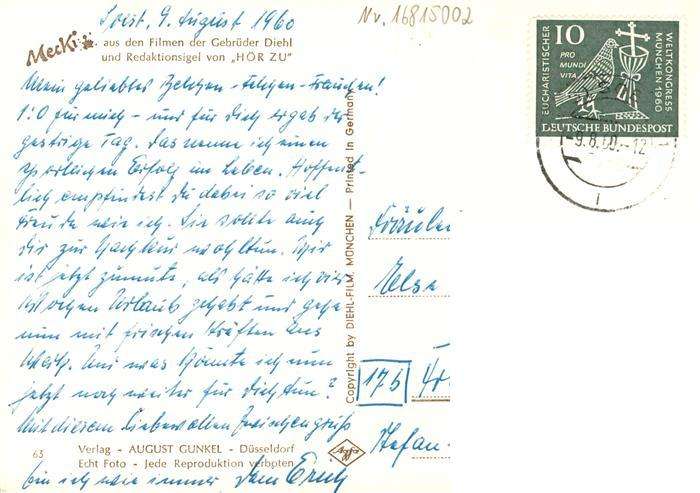 Soest, 9. August 1960
Nr. 16815002
Mecki
aus den Filmen der Gebrüder Diehl
und Redaktionsigel von „HÖR ZU"
Mein geliebtes Frauchen!
1:0 für mich - und für Dich ergab der
gestrige Tag. Das nenne ich einen
Erfolg im Leben. Hoffent-
lich empfindest Du dabei so viel
Freude wie ich. Sie sollte auch
Dir zur wohltun. Mir
ist jetzt zumute, als hätte ich vier
Wochen Urlaub gehabt und gehe
nun mit frischen Kräften ans
Werk. Und was könnte ich nun
jetzt noch weiter für Dich tun?
Mit diesem liebevollen Zwischengruß
bin ich wie immer Dein Erich
63
Verlag - AUGUST GUNKEL - Düsseldorf
Echt Foto - Jede Reproduktion verboten
Copyright by DIEHL-FILM, MÜNCHEN — Printed in Germany
Agfa
EUCHARISTISCHER
WELTKONGRESS
MÜNCHEN 1960
10
PRO
MUNDI
VITA
DEUTSCHE BUNDESPOST
-9.8.60.-12
Fräulei
Elsa
17b
Stefan-